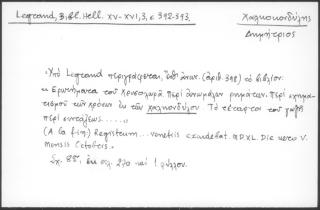 Legrand, Bibl. Hell. XV-XVI, 3, σ 392-393.
Χαλκοκονδύλης
Δημήτριος
Ὑπὸ Legrand περιγράφεται, (ἀριθ. 398) τὸ βιβλίον:
« Ἐρωτήματα τοῦ Χρυσολωρᾶ. Περὶ ἀνωμάλων ρημάτων. Περὶ σχημα-
τισμοῦ τῶν χρόνων ἐκ τῶν Χαλκονδύλου. Τὸ τέταρτον τοῦ γαζῆ
περὶ συντάξεως.....»
(A la fin:) Registrum... Venetiis M.D.XL. Die vero V.
Mensis Octobris.»
Σχ. 8º. ἐκ σελ. 270 καὶ 1 φύλλου.